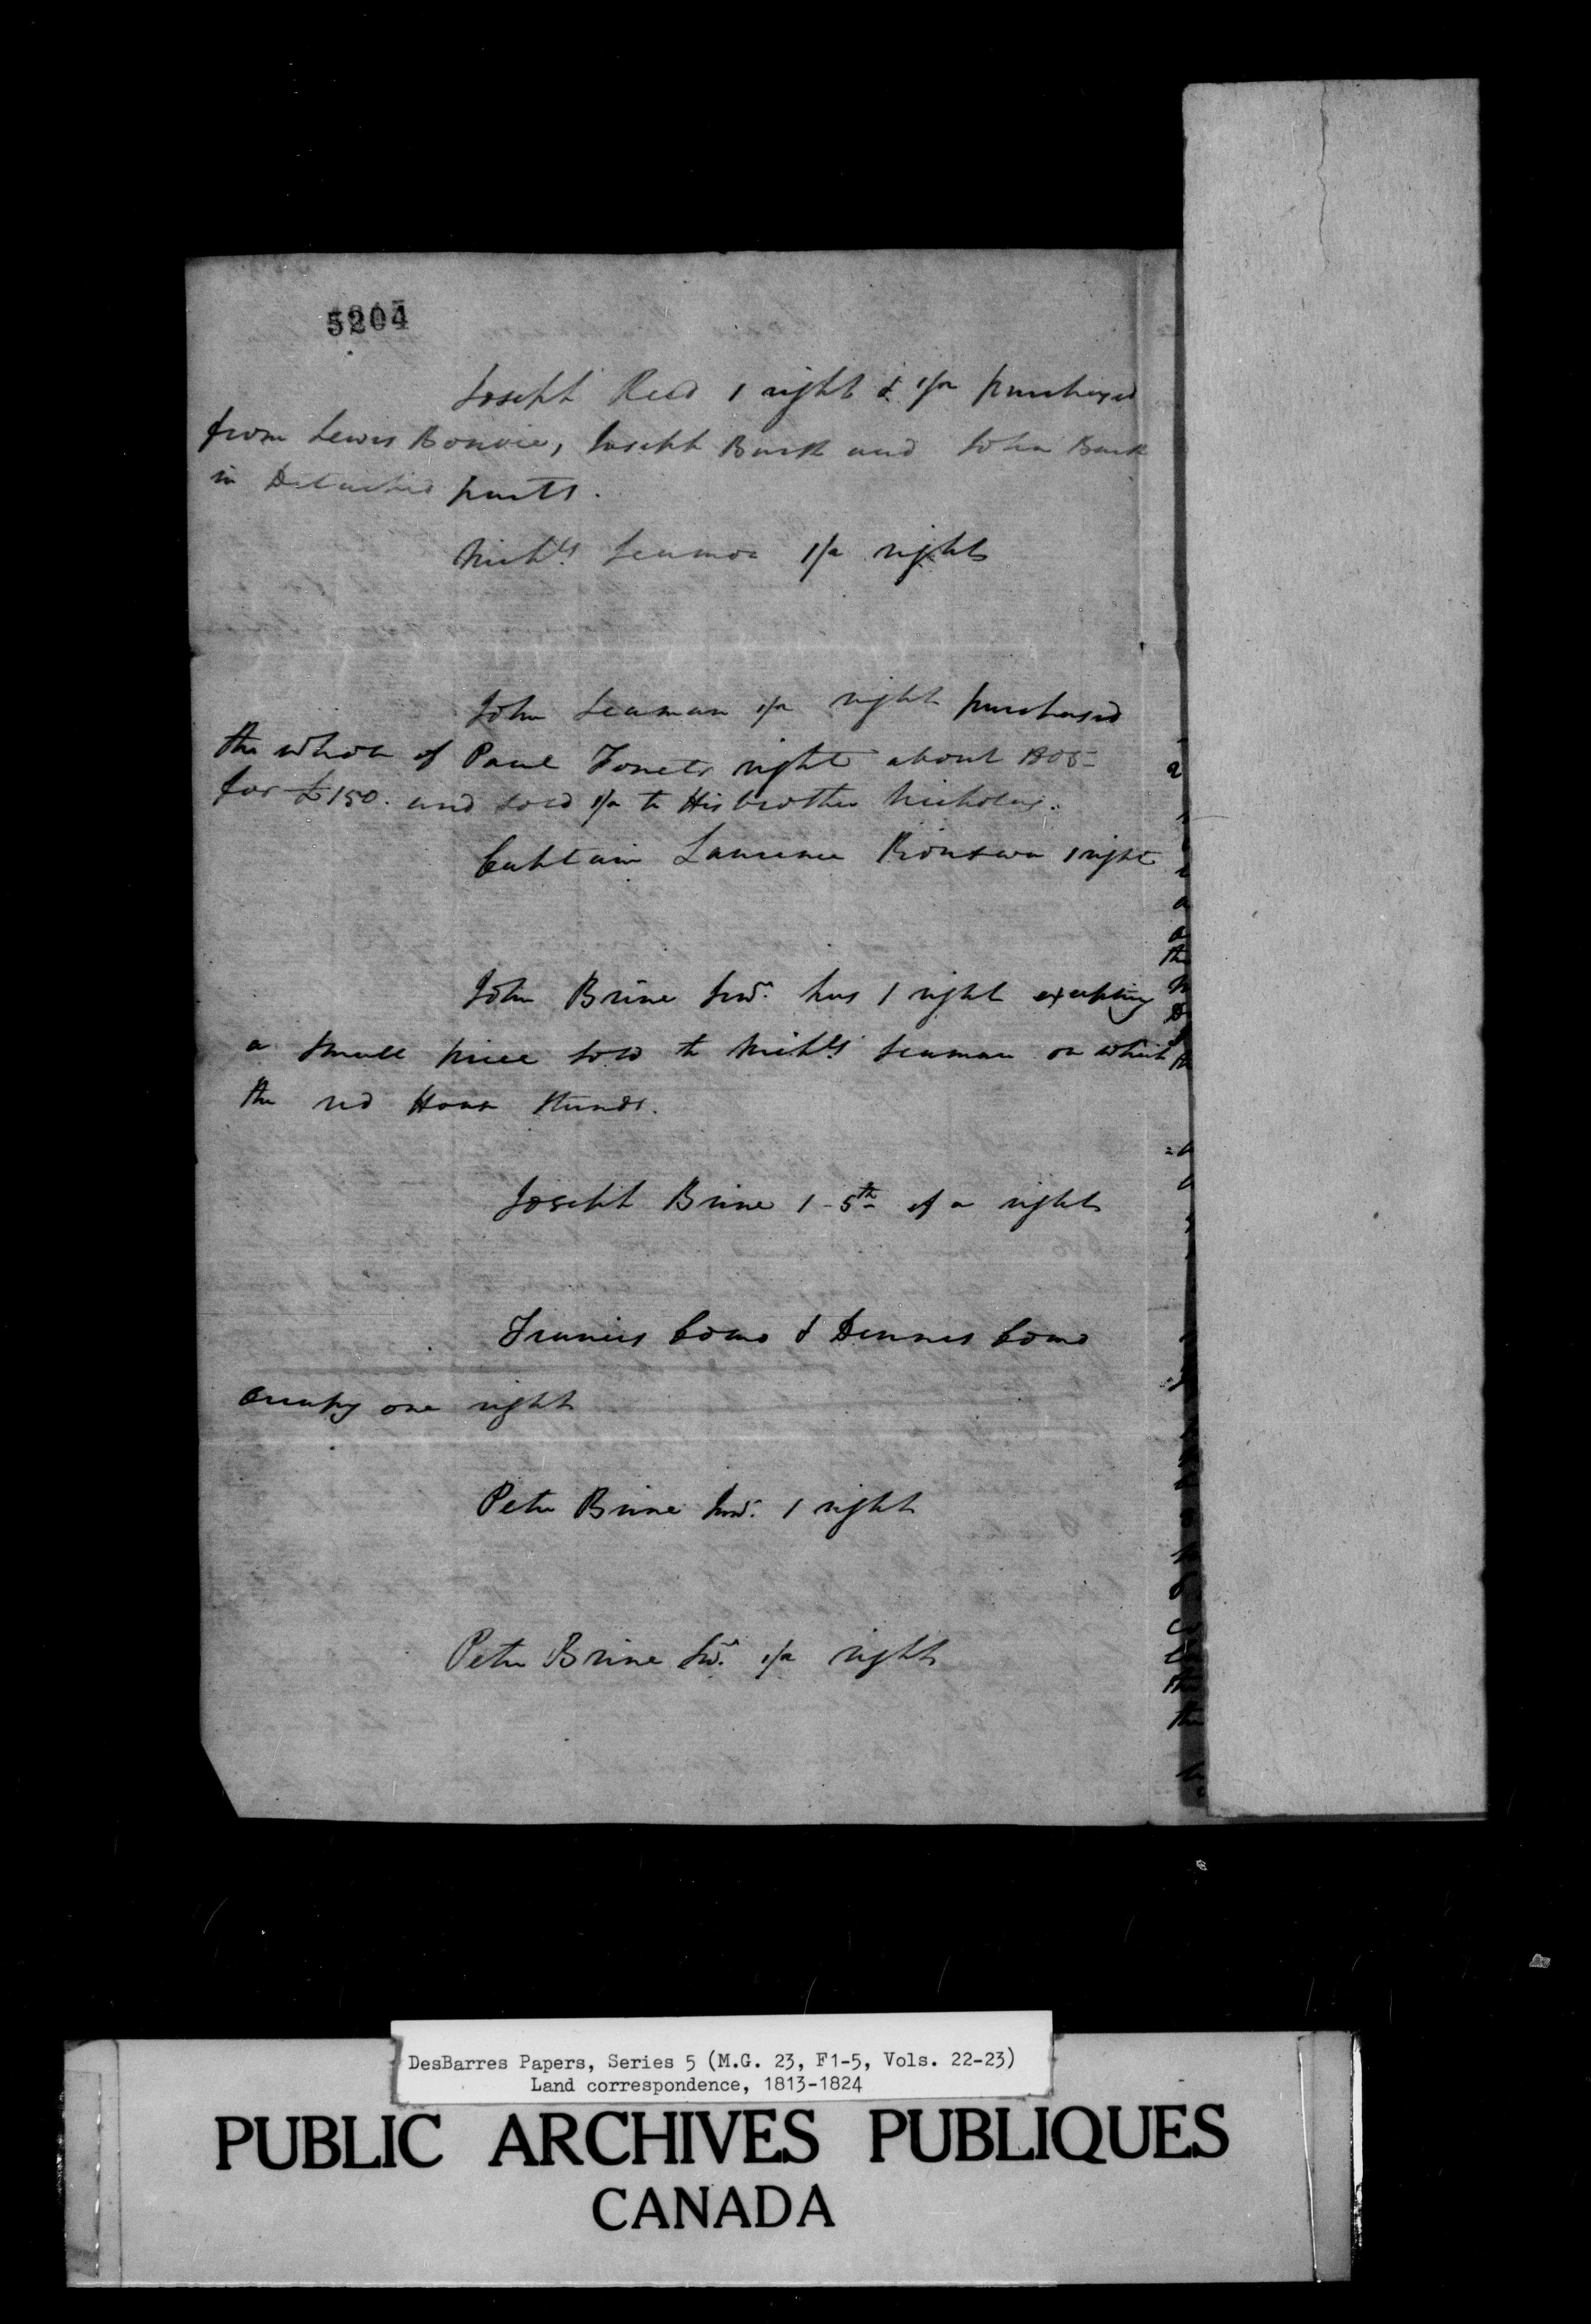 5204
Joseph Read 1 right & 1/2 purchased
from Lewis Bonvie, Joseph Burk and John Burk
in Detached parts.
Nichls Seaman 1/2 right
John Seaman 1/2 right purchased
the whole of Paul Fonets right about 1805
for £150. and sold 1/2 to His brother Nicholas.
Captain Laurence 1 right
John Brine Junr. has 1 right excepting
a small piece sold to Nichls Seaman on which
the red House stands.
Joseph Brine 1-5th of a right
Francis Como & Dennis Como
occupy one right
Peter Brine Junr. 1 right
Peter Brine Sr. 1/2 right
DesBarres Papers, Series 5 (M.G. 23, F1-5, Vols. 22-23)
Land correspondence, 1813-1824
PUBLIC ARCHIVES PUBLIQUES
CANADA